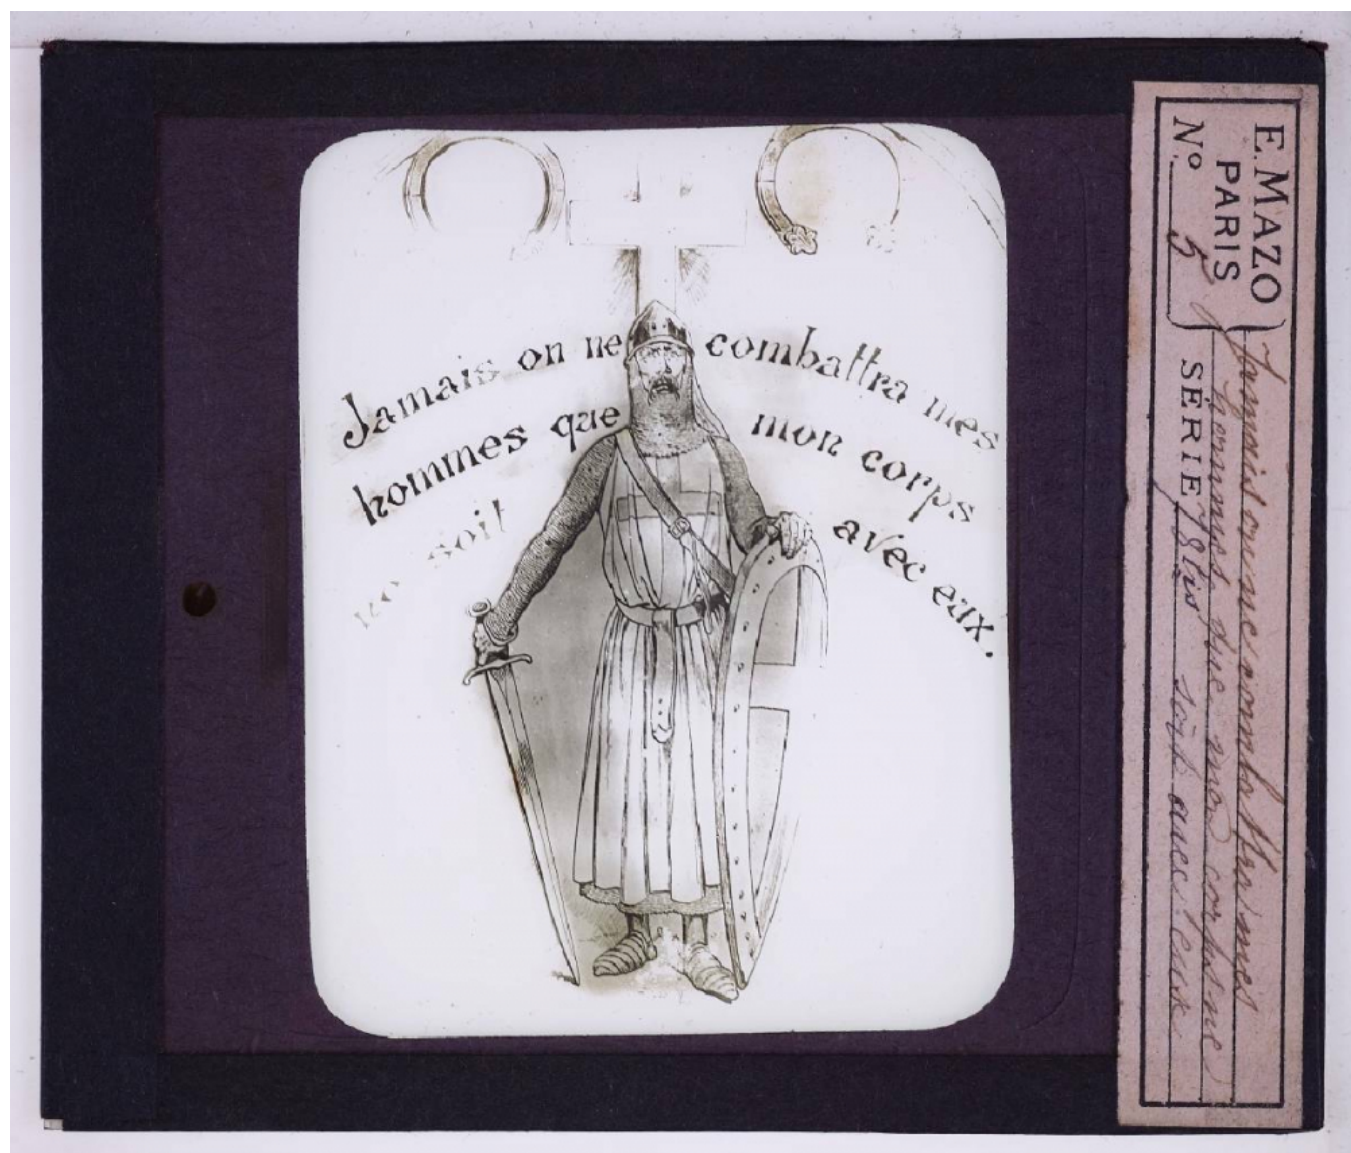 Jamais on ne combattra mes
hommes que mon corps
ne soit avec eux.
E. MAZO
PARIS
No 5
SÉRIE 781bis
Jamais on ne combattra mes
hommes que mon corps ne
soit avec eux